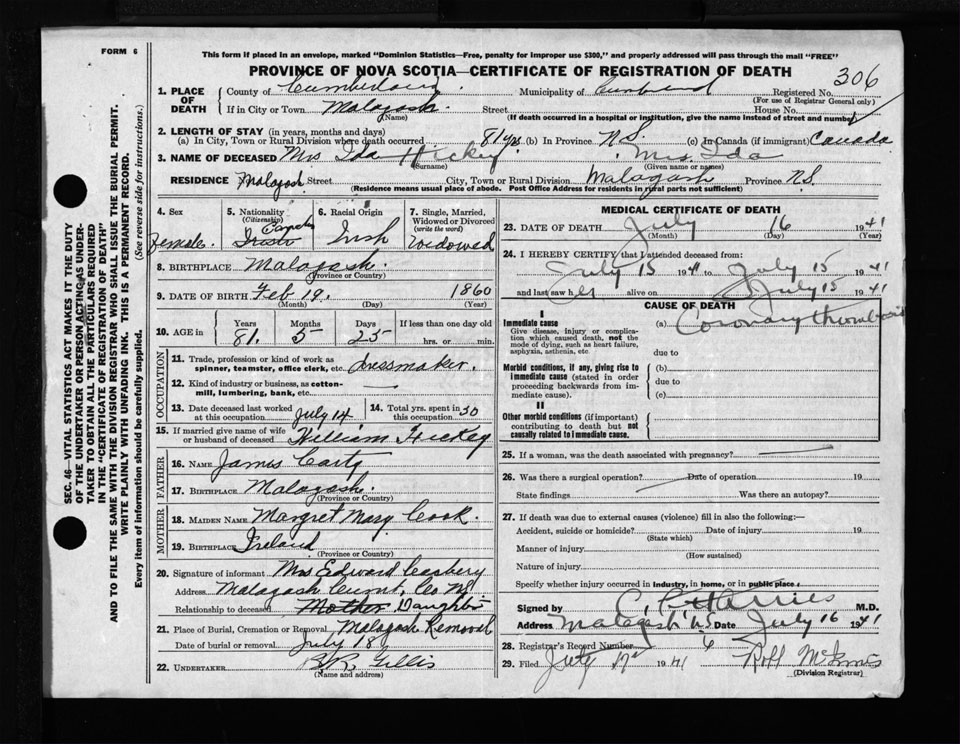 FORM 6
This form if placed in an envelope, marked "Dominion Statistics—Free, penalty for improper use $300," and properly addressed will pass through the mail "FREE"
PROVINCE OF NOVA SCOTIA—CERTIFICATE OF REGISTRATION OF DEATH
306
1. PLACE OF DEATH
County of Cumberland Municipality of Cumberland Registered No.
(For use of Registrar General only)
If in City or Town Malagash. Street House No.
(Name) (If death occurred in a hospital or institution, give the name instead of street and number)
2. LENGTH OF STAY (in years, months and days)
(a) In City, Town or Rural Division where death occurred 81 yrs. (b) In Province N.S. (c) In Canada (if immigrant) Canada
3. NAME OF DECEASED Mrs Ida Hickey Mrs. Ida
(Surname) (Given name or names)
RESIDENCE Malagash Street City, Town or Rural Division Malagash Province N.S.
(Residence means usual place of abode. Post Office Address for residents in rural parts not sufficient)
4. Sex
Female.
5. Nationality
(Citizenship)
Irish
6. Racial Origin
Irish
7. Single, Married, Widowed or Divorced
(write the word)
Widowed
8. BIRTHPLACE Malagash.
(Province or Country)
9. DATE OF BIRTH Feb 19. 1860
(Month) (Day) (Year)
10. AGE in
Years Months Days If less than one day old
81. 5 25 hrs. or min.
OCCUPATION
11. Trade, profession or kind of work as spinner, teamster, office clerk, etc. dressmaker.
12. Kind of industry or business, as cotton-mill, lumbering, bank, etc.
13. Date deceased last worked at this occupation July 14
14. Total yrs. spent in this occupation 30
15. If married give name of wife or husband of deceased William Hickey
FATHER
16. NAME James Carty
17. BIRTHPLACE Malagash.
(Province or Country)
MOTHER
18. MAIDEN NAME Margret Mary Cook.
19. BIRTHPLACE Ireland
(Province or Country)
20. Signature of informant Mrs Edward
Address Malagash Cumb. Co NS.
Relationship to deceased Mother Daughter
21. Place of Burial, Cremation or Removal Malagash Removal
Date of burial or removal July 18
22. UNDERTAKER B.R. Gillis
(Name and address)
MEDICAL CERTIFICATE OF DEATH
23. DATE OF DEATH July 16 1941
(Month) (Day) (Year)
24. I HEREBY CERTIFY that I attended deceased from:
July 15 1941 to July 15 1941
and last saw her alive on July 15 1941
CAUSE OF DEATH
I
Immediate cause
Give disease, injury or complication which caused death, not the mode of dying, such as heart failure, asphyxia, asthenia, etc
(a) Coronary thrombosis
due to
Morbid conditions, if any, giving rise to immediate cause (stated in order proceeding backwards from immediate cause).
(b)
due to
(c)
II
Other morbid conditions (if important) contributing to death but not causally related to immediate cause.
25. If a woman, was the death associated with pregnancy?
26. Was there a surgical operation? Date of operation 19
State findings Was there an autopsy?
27. If death was due to external causes (violence) fill in also the following:—
Accident, suicide or homicide? Date of injury 19
(State which)
Manner of injury
(How sustained)
Nature of injury
Specify whether injury occurred in industry, in home, or in public place
Signed by Harries M.D.
Address Malagash NS Date July 16 1941
28. Registrar's Record Number 4
29. Filed July 17 1941
(Division Registrar)
SEC. 46—VITAL STATISTICS ACT MAKES IT THE DUTY
OF THE UNDERTAKER OR PERSON ACTING AS UNDERTAKER TO OBTAIN ALL THE PARTICULARS REQUIRED
IN THE "CERTIFICATE OF REGISTRATION OF DEATH"
AND TO FILE THE SAME WITH THE DIVISION REGISTRAR WHO SHALL ISSUE THE BURIAL PERMIT.
WRITE PLAINLY WITH UNFADING INK. THIS IS A PERMANENT RECORD.
Every item of information should be carefully supplied. (See reverse side for instructions.)